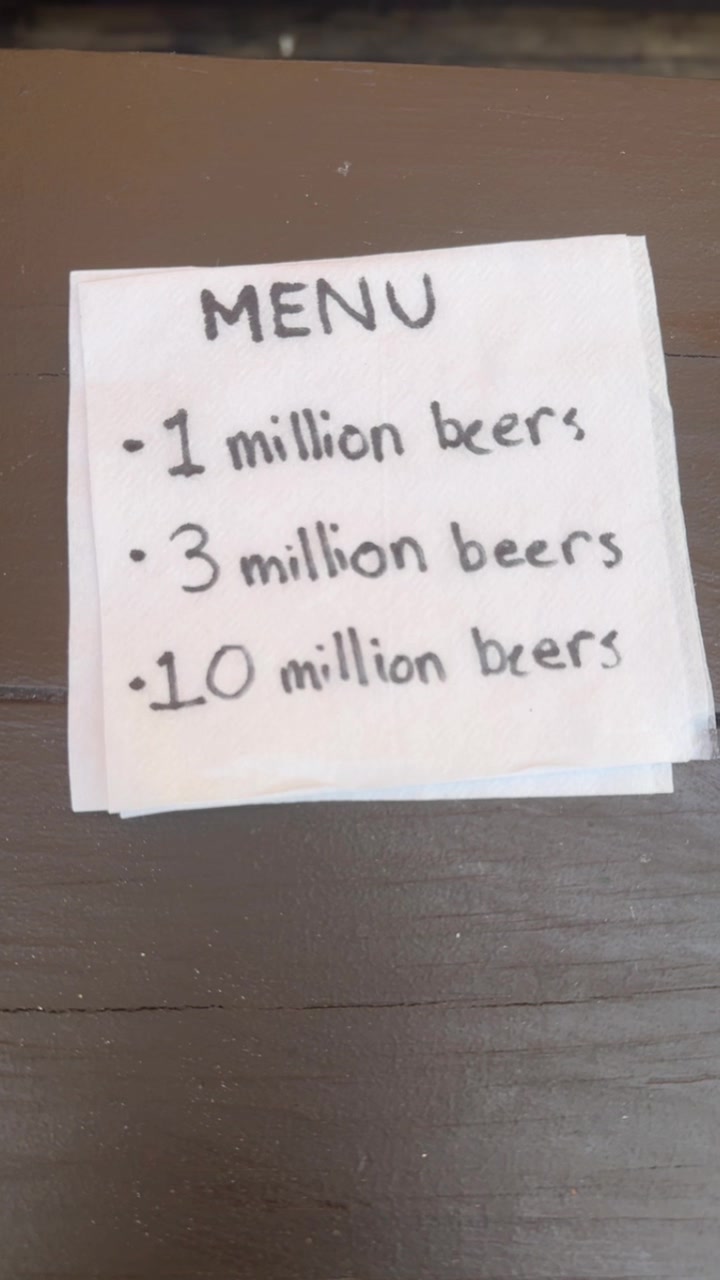 MENU
• 1 million beers
• 3 million beers
• 10 million beers